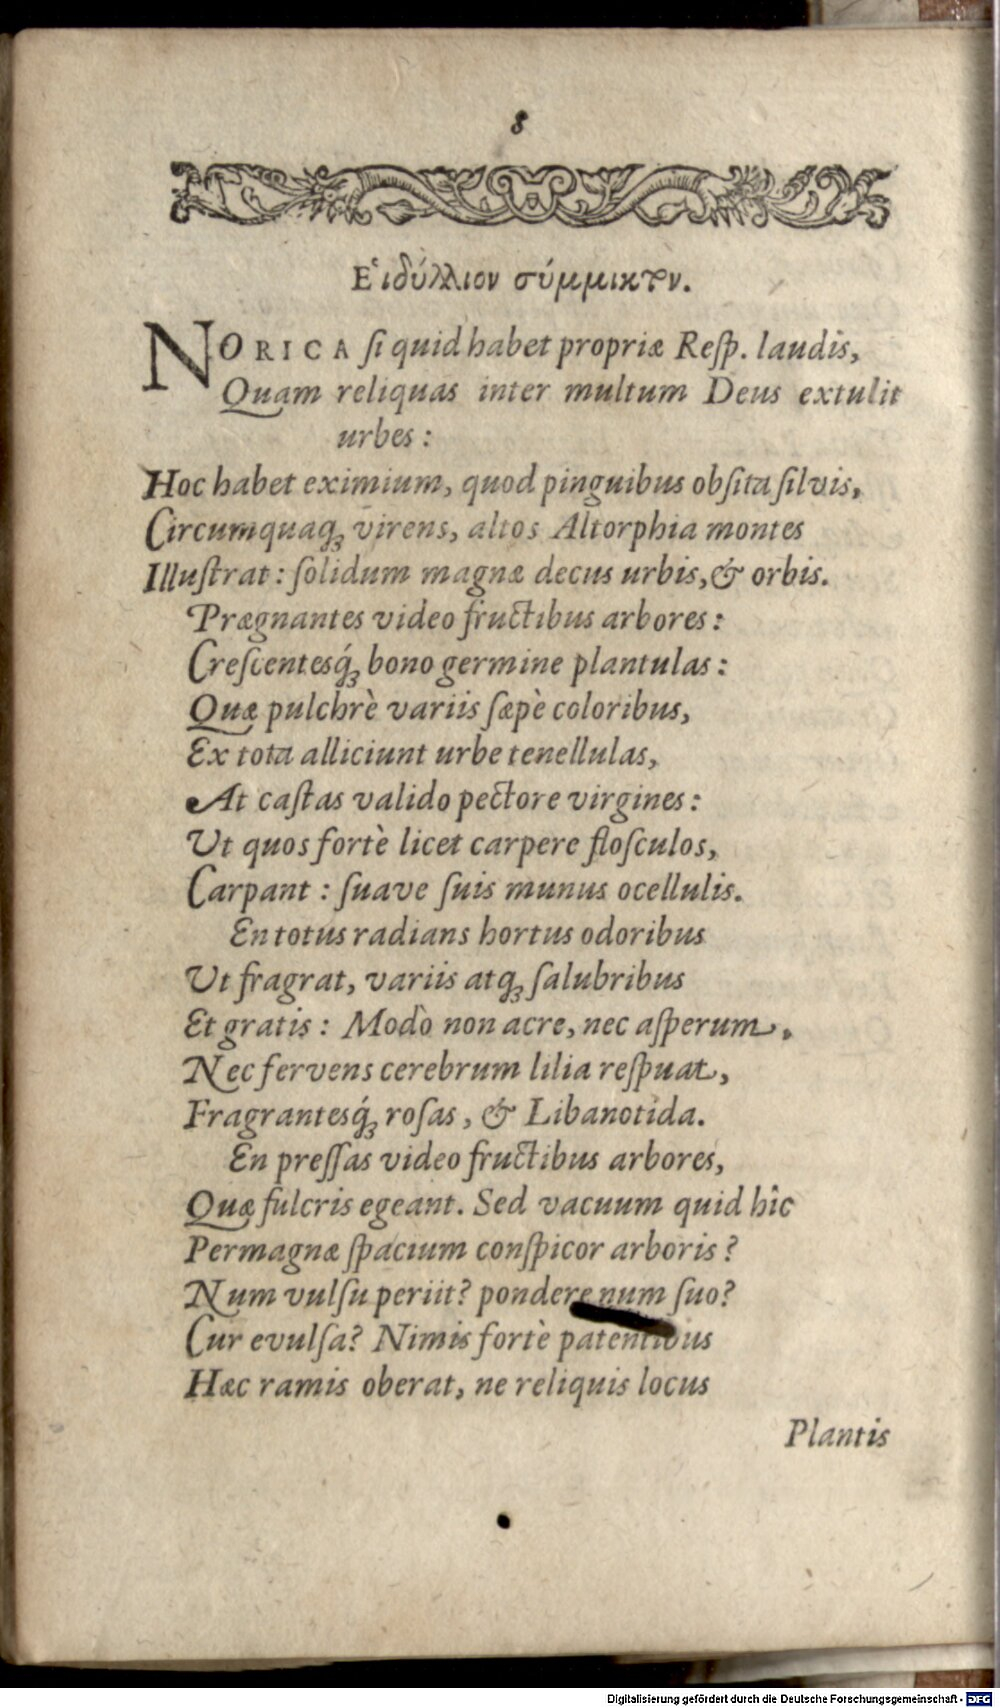 8
Εἰδύλλιον σύμμικτον.
NORICA ſi quid habet propriæ Reſp. laudis,
Quam reliquas inter multum Deus extulit
urbes:
Hoc habet eximium, quod pinguibus obſita ſilvis,
Circumquaqꝫ virens, altos Altorphia montes
Illuſtrat: ſolidum magnæ decus urbis, & orbis.
Prægnantes video fructibus arbores:
Creſcentesq́ꝫ bono germine plantulas:
Quæ pulchrè variis ſæpè coloribus,
Ex tota alliciunt urbe tenellulas,
At caſtas valido pectore virgines:
Ut quos fortè licet carpere floſculos,
Carpant: ſuave ſuis munus ocellulis.
En totus radians hortus odoribus
Ut fragrat, variis atqꝫ ſalubribus
Et gratis: Modò non acre, nec aſperum,
Nec fervens cerebrum lilia reſpuat,
Fragrantesq́ꝫ roſas, & Libanotida.
En preſſas video fructibus arbores,
Quæ fulcris egeant. Sed vacuum quid hîc
Permagnæ ſpacium conſpicor arboris?
Num vulſu periit? pondere num ſuo?
Cur evulſa? Nimis fortè patentibus
Hæc ramis oberat, ne reliquis locus
Plantis
Digitalisierung gefördert durch die Deutsche Forschungsgemeinschaft - DFG